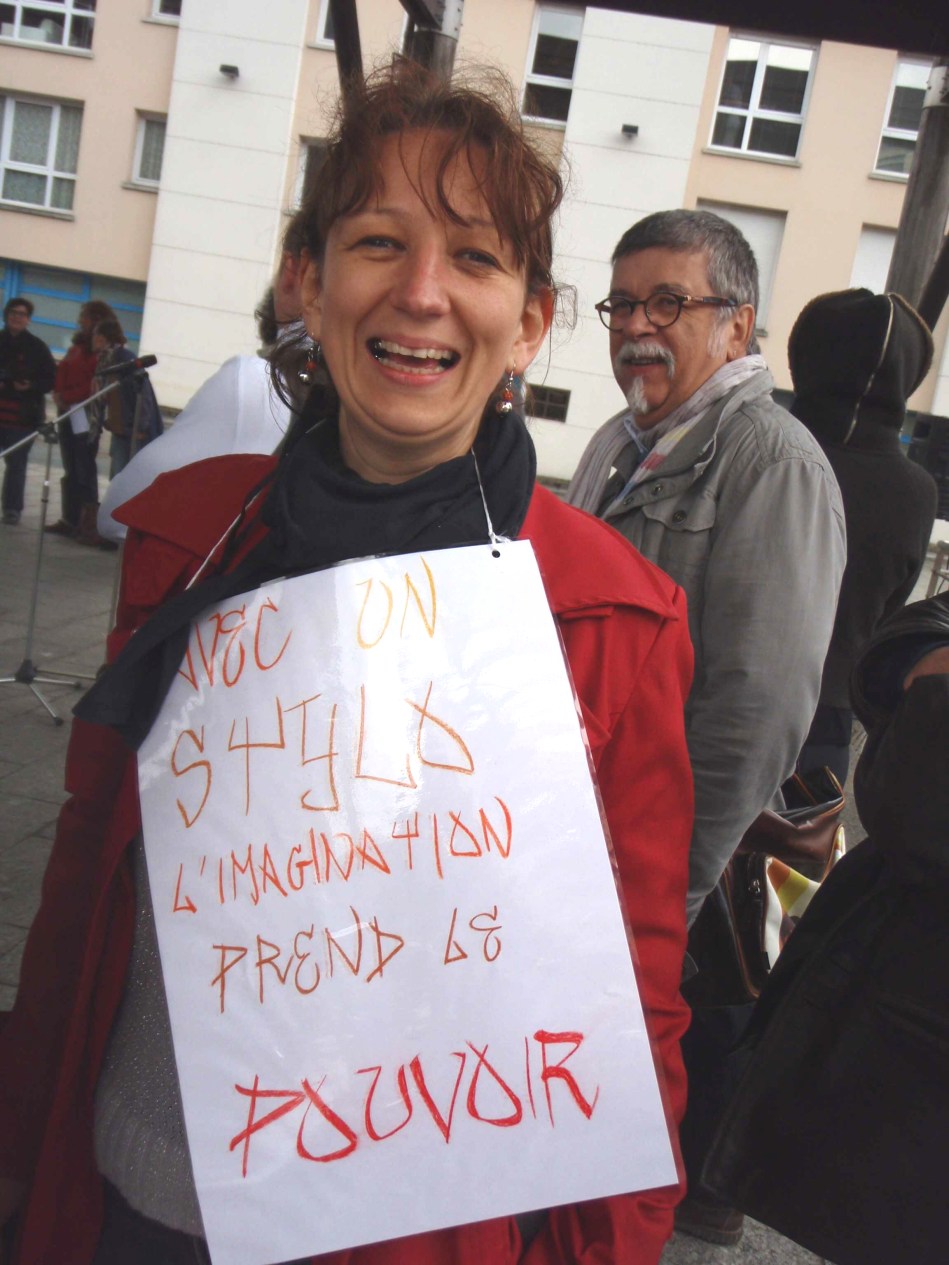 AVEC UN
STYLO
L'IMAGINATION
PREND LE
POUVOIR